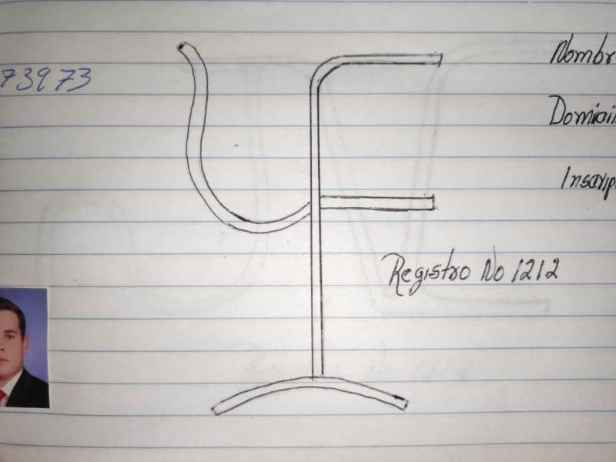 73973
Nombr
Domicil
Inscrip
Registro No 1212